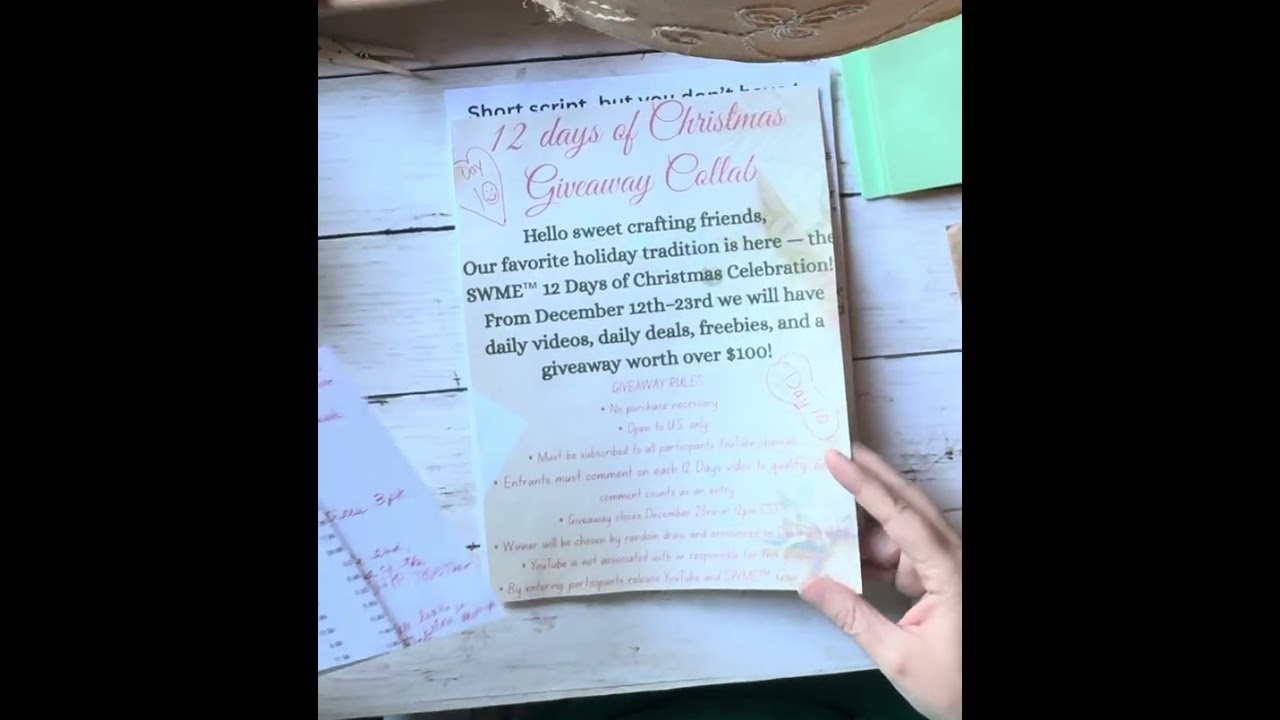 Short script, but you don't have t
12 days of Christmas
Giveaway Collab
Day
10
Hello sweet crafting friends,
Our favorite holiday tradition is here — the
SWME™ 12 Days of Christmas Celebration!
From December 12th–23rd we will have
daily videos, daily deals, freebies, and a
giveaway worth over $100!
GIVEAWAY RULES
• No purchase necessary
• Open to U.S. only
Day 10
• Must be subscribed to all participants YouTube channels
• Entrants must comment on each 12 Days video to qualify,
comment counts as an entry
• Giveaway closes December 23rd at 12pm EST
• Winner will be chosen by random draw and announced on
• YouTube is not associated with or responsible for this
• By entering participants release YouTube and SWME™
3pk